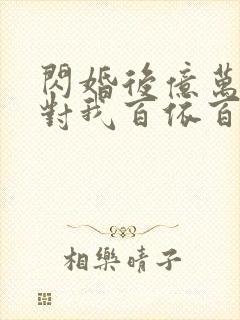 閃婚後億萬
對我百依百
相樂晴子